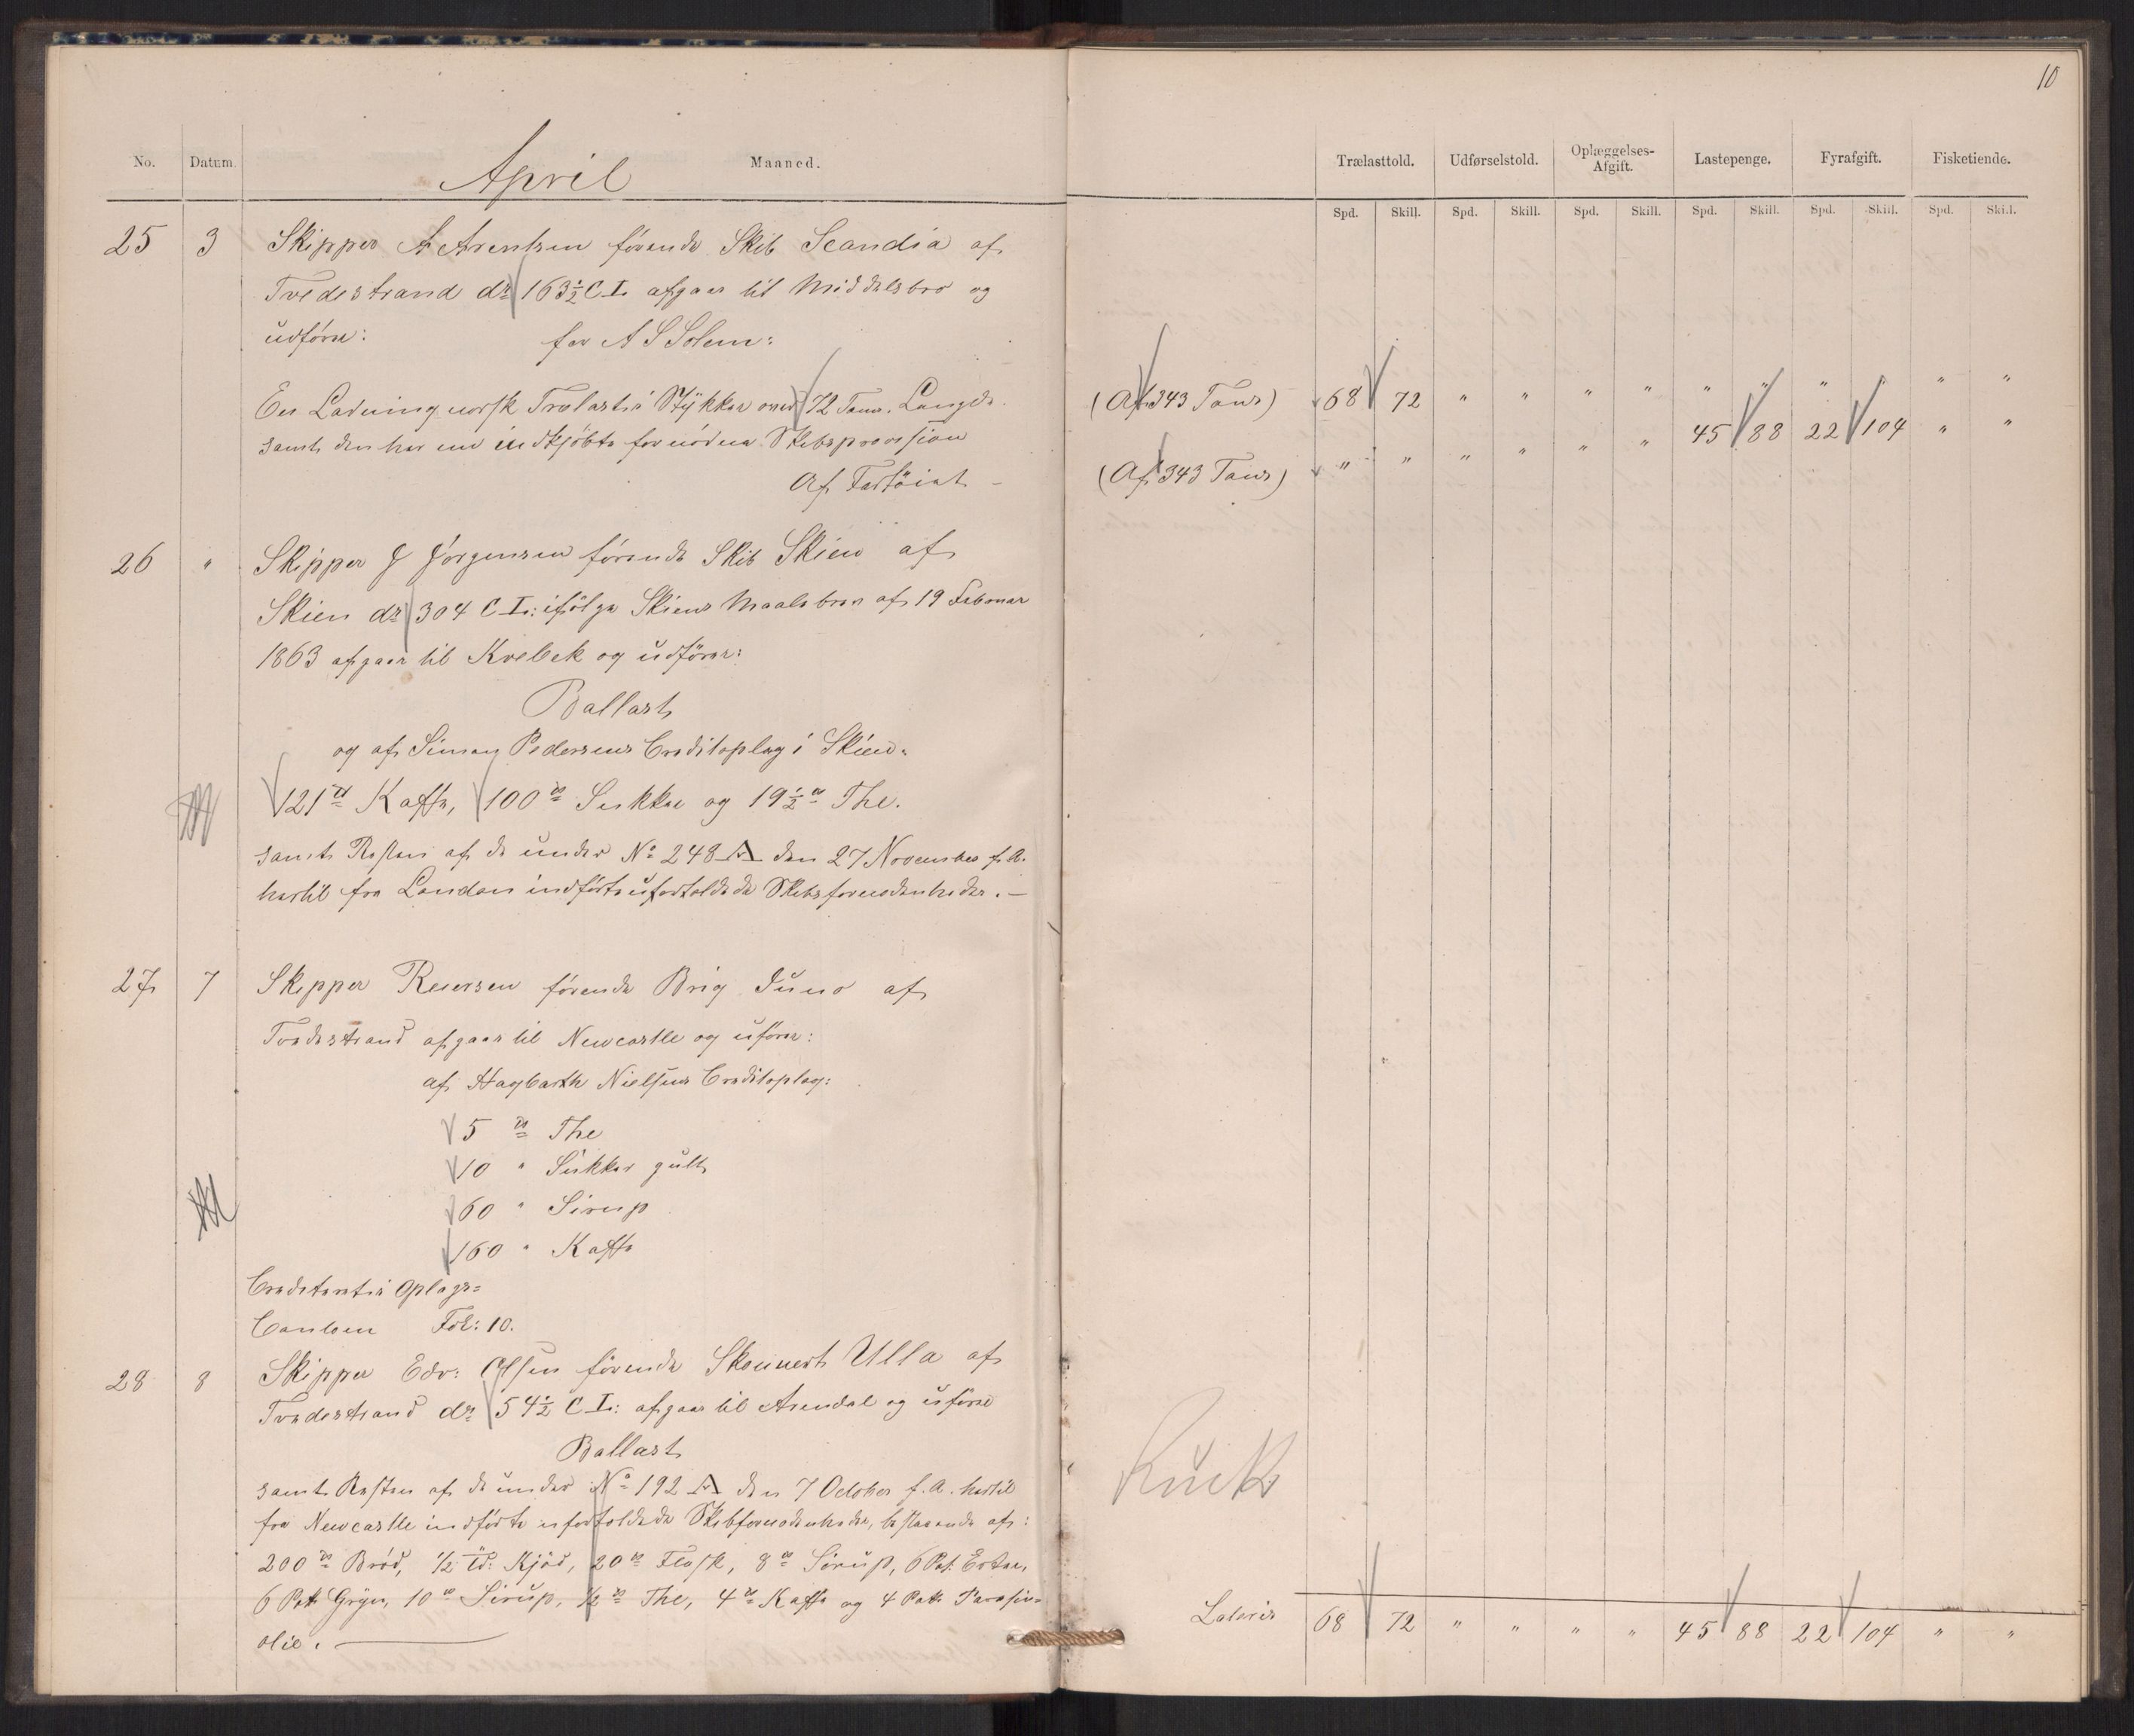 10
No. Datum. April Maaned.
Trælasttold. Udførselstold. Oplæggelses-Afgift. Lastepenge. Fyrafgift. Fisketiende.
Spd. Skill. Spd. Skill. Spd. Skill. Spd. Skill. Spd. Skill. Spd. Skill.
25 3 Skipper A Arentsen förende Skib Scandia af
Tvedestrand dr. 163½ C L. afgaar til Middelsbro og
udförer: for A S Solem:
En Ladning norsk Trælast i Stykker over 72 Tom. Længde (Af 343 Tons) 68 72 " " " " " " " " " "
samt den her med indkjöbte fornödne Skibsprovision
Af Fartöiet - (Af 343 Tons) " " " " " " 45 88 22 104 " "
26 " Skipper J Jörgensen förende Skib Skien af
Skien dr. 304 C L: ifölge Skiens Maalebrev af 19 Februar
1863 afgaar til Kvebek og udförer:
Ballast
og af Simon Pedersens Creditoplag i Skien:
121 ℔ Kaffe, 100 ℔ Sukker og 19½ ℔ The.
samt Resten af de under No 248 A den 27 November f. A.
hertil fra London indförte ufortoldede Skibsfornödenheder. —
27 7 Skipper Reiersen förende Brig Juno af
Tvedestrand afgaar til Newcastle og uförer:
af Hagbarth Nielsens Creditoplag:
5 ℔ The
10 " Sukker gult
60 " Sirup
160 " Kaffe
Oplags=
Fol: 10.
28 8 Skipper Edv: Olsen förende Skonnert Ulla af
Tvedestrand dr. 54½ C L: afgaar til Arendal og uförer
Ballast
samt Resten af de under No 192 A den 7 October f. A. hertil
fra Newcastle indförte ufortoldede Skibsfornödenheder, bestaaende af:
200 ℔ Bröd, 1/2 Td: Kjöd, 20 ℔ Flesk, 8 ℔ Sirup, 6 Pot. Erter,
6 Pot. Gryn, 10 ℔ Sirup, 1/2 ℔ The, 4 ℔ Kaffe og 4 Pot. Parafin=
olie. —
Lateris 68 72 " " " " 45 88 22 104 " "